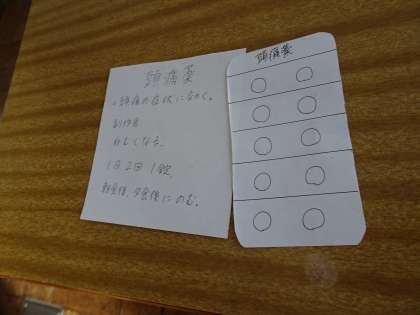 頭痛薬
頭痛の症状になく。
副作用
ねむくなる。
1日2回 1錠。
朝食後、夕食後にのむ。
頭痛薬